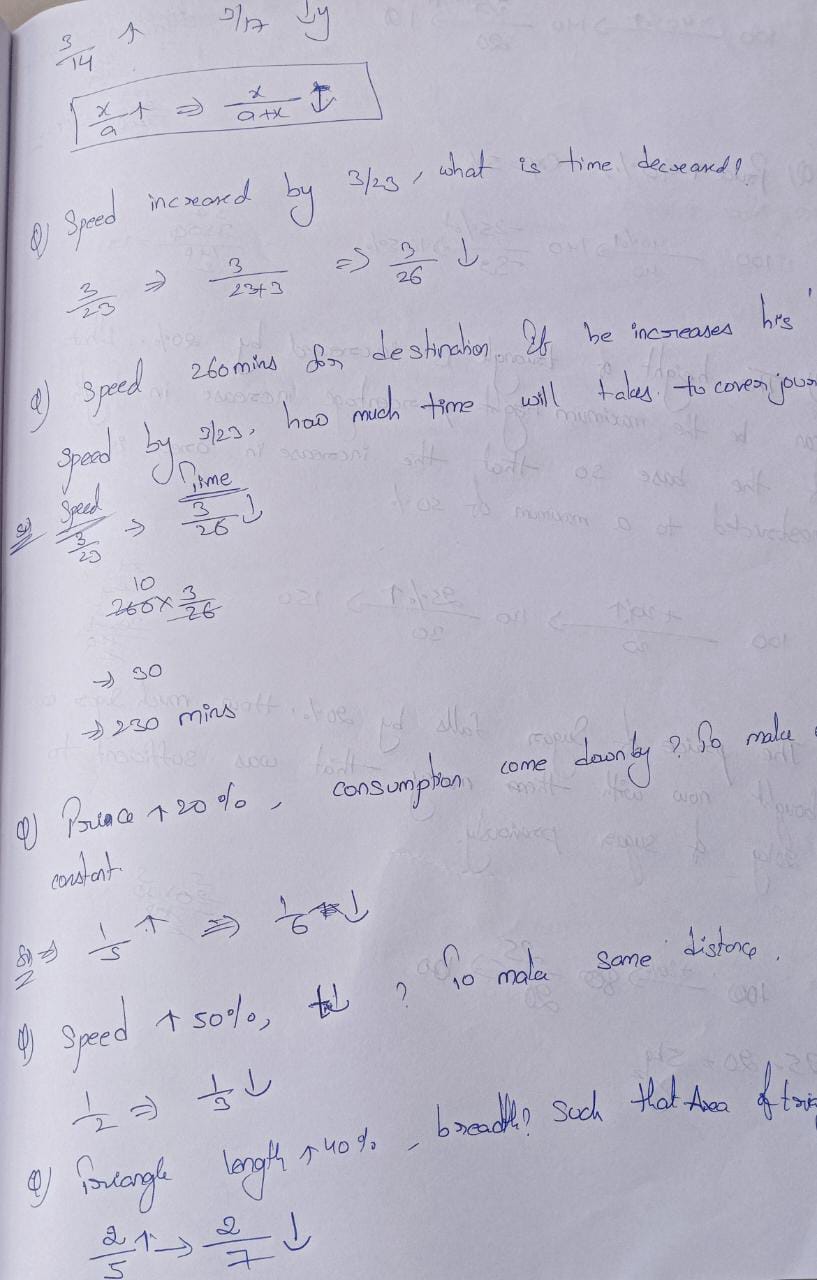 3/14 ↑ 3/17 ↓y
x/a ↑ ⇒ x/a+x ↓
Q) Speed increased by 3/23, what is time decreased?
3/23 ⇒ 3/23+3 ⇒ 3/26 ↓
Q) Speed 260mins for destination If he increases his
speed by 3/23, how much time will takes to cover jour
Sol) Speed Time
3/23 ⇒ 3/26 ↓
10
260 x 3/26
→ 30
→ 230 mins
Q) Prince ↑ 20%, consumption come down by? To make
constant.
Sol ⇒ 1/5 ↑ ⇒ 1/6 ↓
Q) Speed ↑ 50%, t↓ ? To make same distance.
1/2 ⇒ 1/3 ↓
Q) Triangle length ↑ 40%, breadth? Such that Area of tri
2/5 ↑ → 2/7 ↓